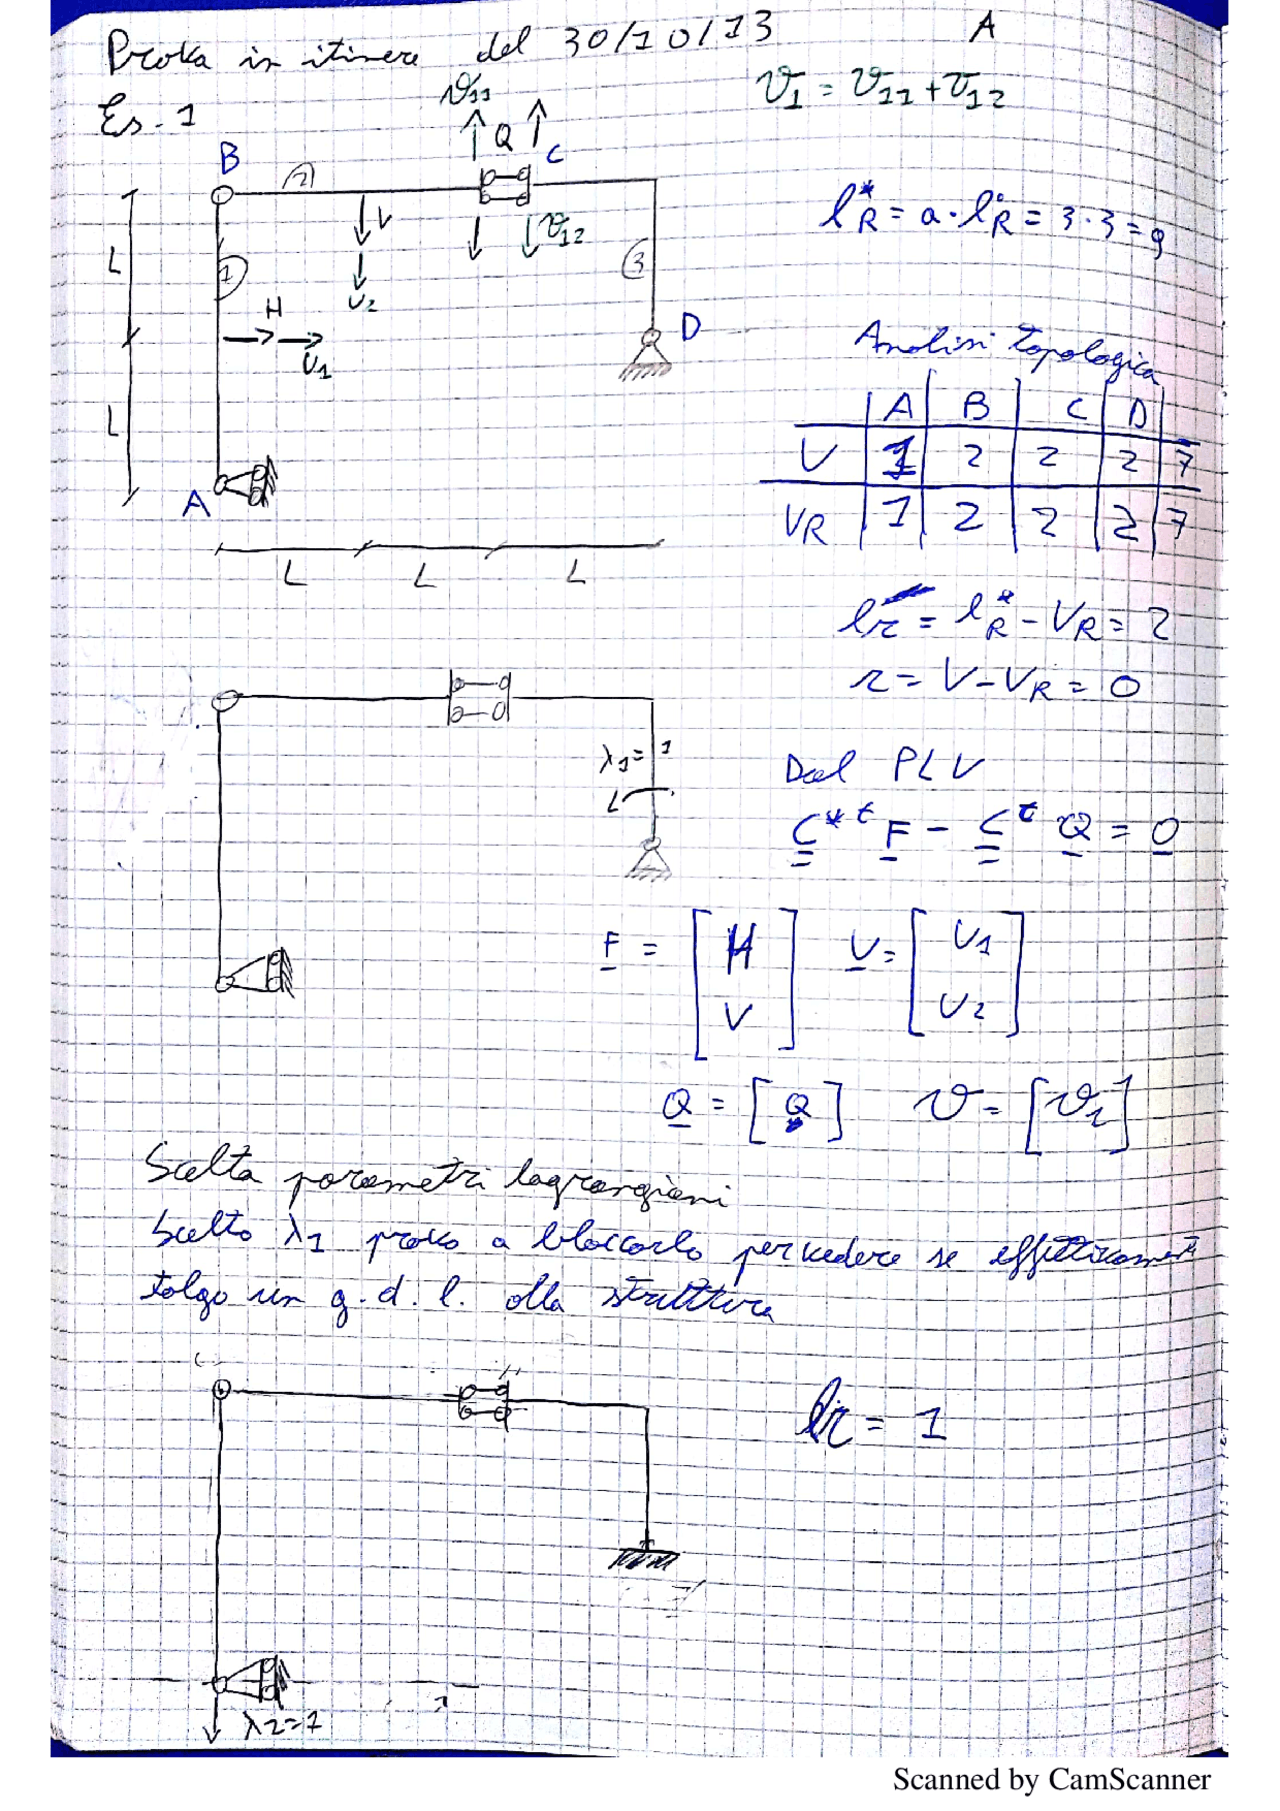 Prova in itinere del 30/10/13 A
Es. 1
v11
v1 = v11 + v12
Q
B
C
2
V
v12
L
1
U2
3
l*R = a · l°R = 3 · 3 = 9
H
U1
D
Analisi topologica
A B C D
V 1 2 2 2 7
VR 1 2 2 2 7
L
A
L L L
lr = l*R - VR = 2
r = V - VR = 0
λ1 = 1
Dal PLV
C*t F - Ct Q = 0
F = [H V] U = [U1 U2]
Q = [Q] v = [v1]
Scelta parametri lagrangiani
Scelto λ1 provo a bloccarlo per vedere se effettivament
tolgo un g.d.l. alla struttura
lr = 1
λ2=1
Scanned by CamScanner